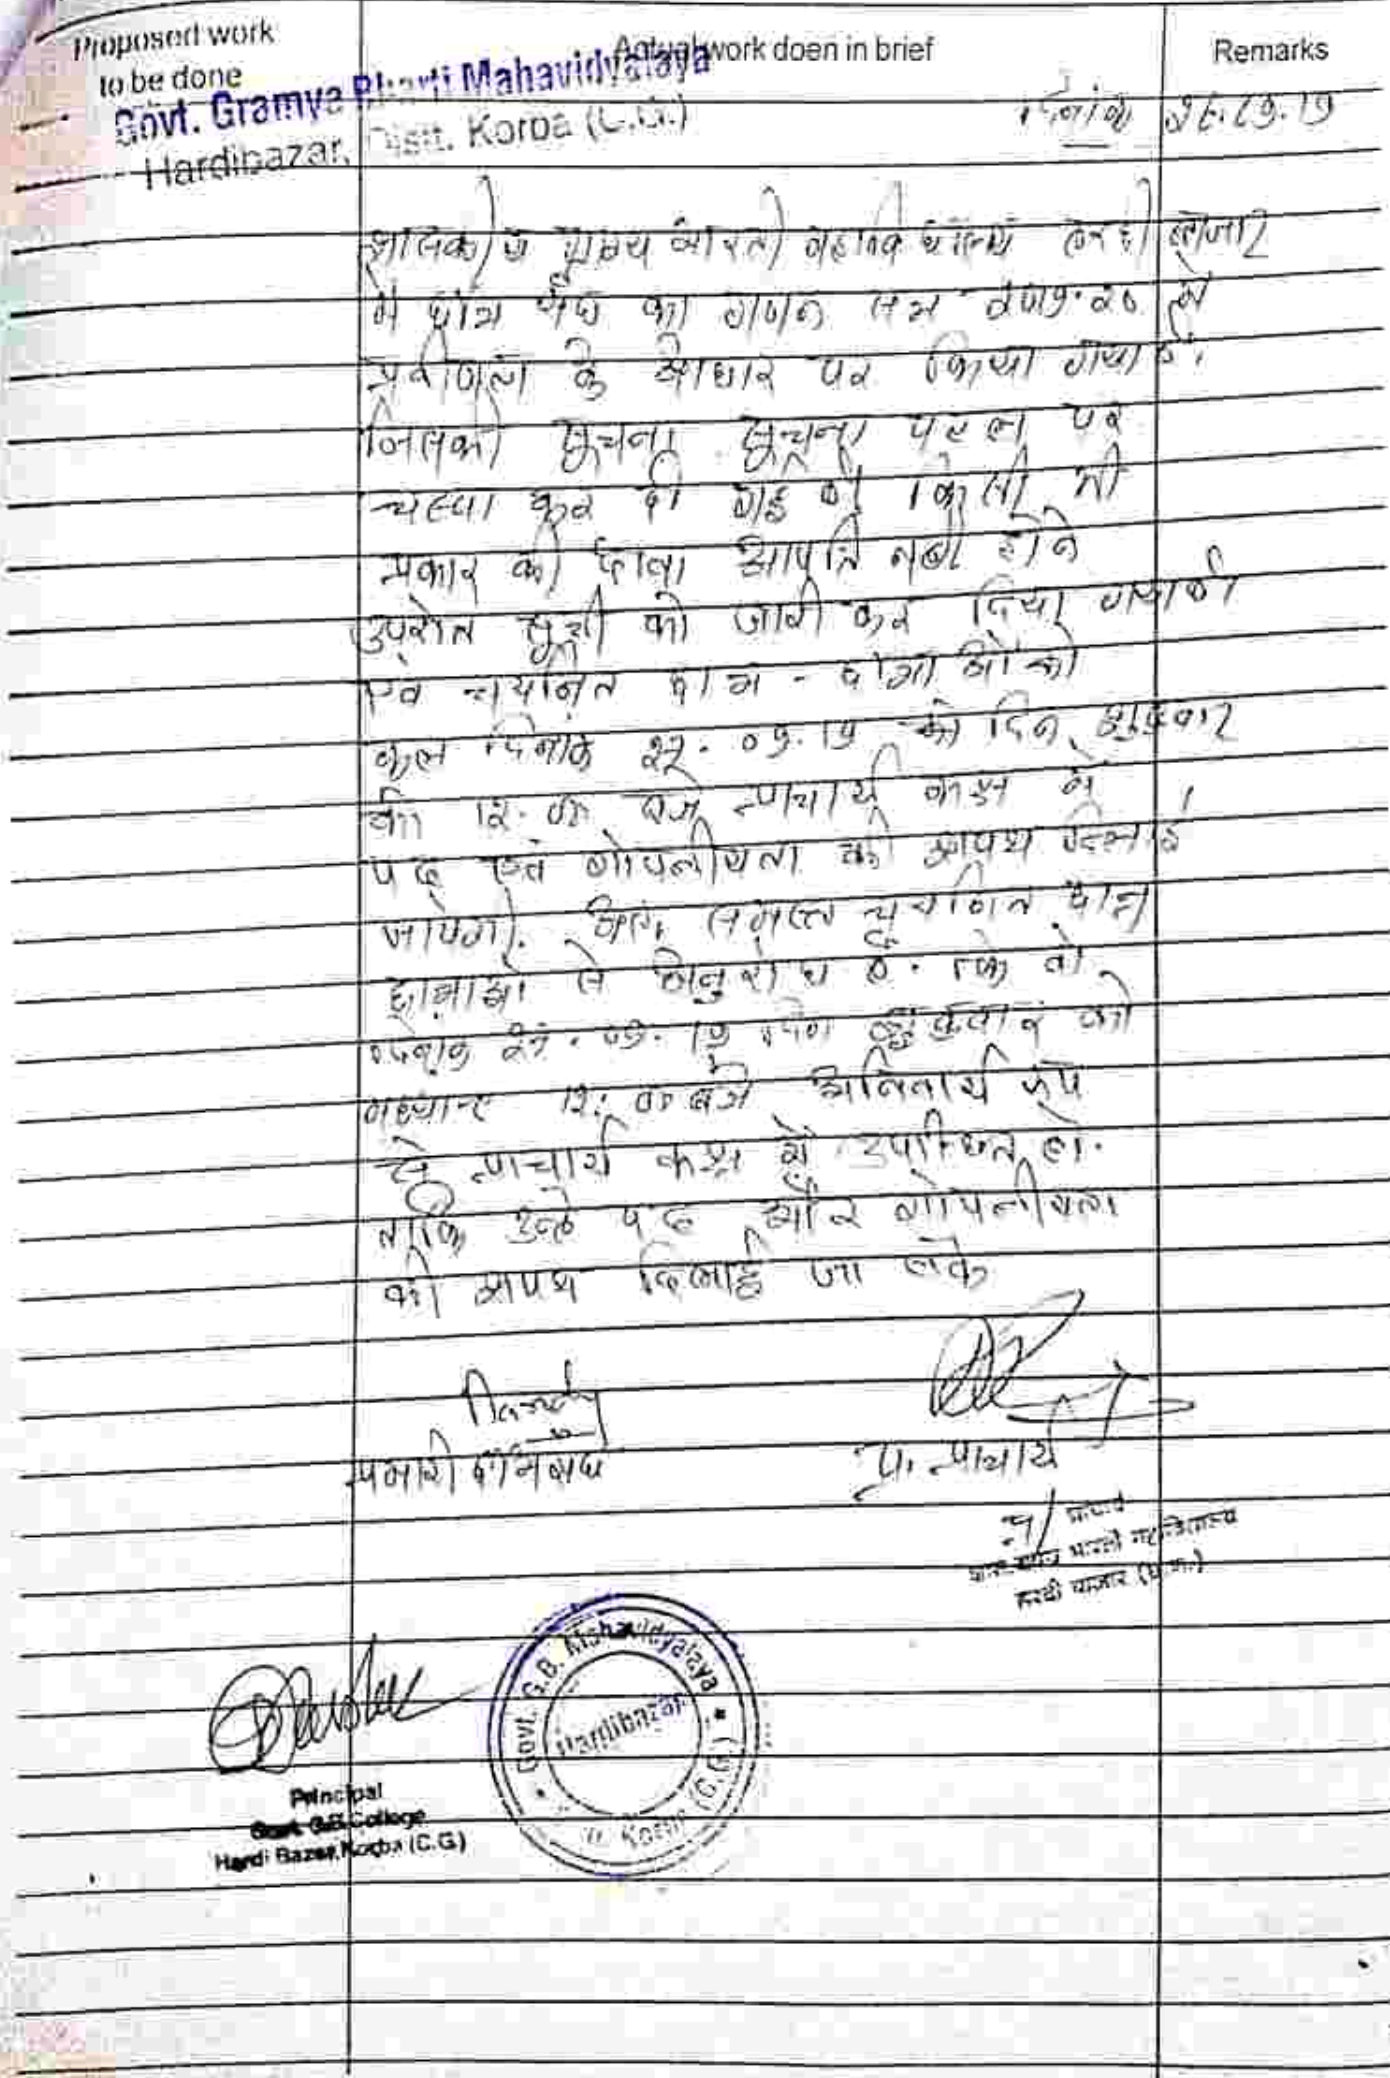 Proposed work
to be done
Actual work doen in brief
Remarks
Govt. Gramya Bharti Mahavidyalaya
Hardibazar, Distt. Korba (C.G.)
दिनांक 26.09.19
शासकीय ग्राम्य भारती महाविद्यालय हरदी बाजार
में छात्र संघ का गठन सत्र 2019-20 में
प्रवीणता के आधार पर किया गया है।
जिसकी सूचना सूचना पटल पर
चस्पा कर दी गई है किसी भी
प्रकार की दावा आपत्ति नही होने
उपरांत सूची को जारी कर दिया गया है
एवं चयनित छात्र - छात्राओं को
कल दिनांक 27.09.19 को दिन शुक्रवार
को 12.00 बजे प्राचार्य कक्ष में
पद एवं गोपनीयता की शपथ दिलाई
जायेगी. अतः समस्त चयनित छात्र
छात्राओं से अनुरोध है. कि वो
दिनांक 27.09.19 दिन शुक्रवार को
मध्यान्ह 12:00 बजे अनिवार्य रूप
से प्राचार्य कक्ष में उपस्थित हो.
ताकि उन्हे पद और गोपनीयता
की शपथ दिलाई जा सके
प्रभारी छात्रसंघ
प्र. प्राचार्य
प्र/ प्राचार्य
शास. ग्राम्य भारती महाविद्यालय
हरदी बाजार (छ.ग.)
Govt. G.B. Mahavidyalaya
Hardibazar
Korba (C.G.)
Principal
Govt. G.B. College
Hardi Bazar, Korba (C.G.)